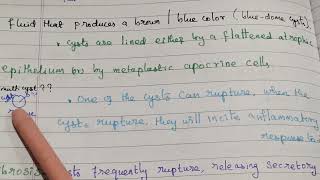 fluid that produces a brown / blue color (blue-dome cysts).
• cysts are lined either by a flattened atrophic
epithelium or by metaplastic apocrine cells.
multi cyst??
cyst
• One of the cysts can rupture, when the
cysts rupture, they will incite inflammatory
response to
cysts frequently rupture, releasing secretory